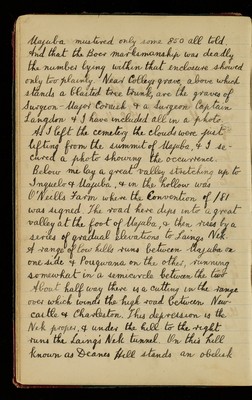 Majuba mustered only some 850 all told.
And that the Boer marksmanship was deadly
the number lying within that enclosure showed
only too plainly. Near Colley's grave, above which
stands a blasted tree trunk, are the graves of
Surgeon Major Cornish & a Surgeon Captain
Langdon & I have included all in a photo.
As I left the cemetery the clouds were just
lifting from the summit of Majuba, & I se-
cured a photo showing the occurrence.
Below me lay a great valley stretching up to
Inguelo & Majuba, & in the hollow was
O'Neills Farm where the Convention of /81
was signed. The road here dips into a great
valley at the foot of Majuba, & then rises by a
series of gradual elevations to Laings Nek
A range of low hills runs between Majuba on
one side & Pougwana on the other, running
somewhat in a semicircle between the two
About half way there is a cutting in the range
over which winds the high road between New-
castle & Charleston. This depression is the
Nek proper, & under the hill to the right
runs the Laing's Nek tunnel. On this hill
known as Deanes Hill stands an obelisk